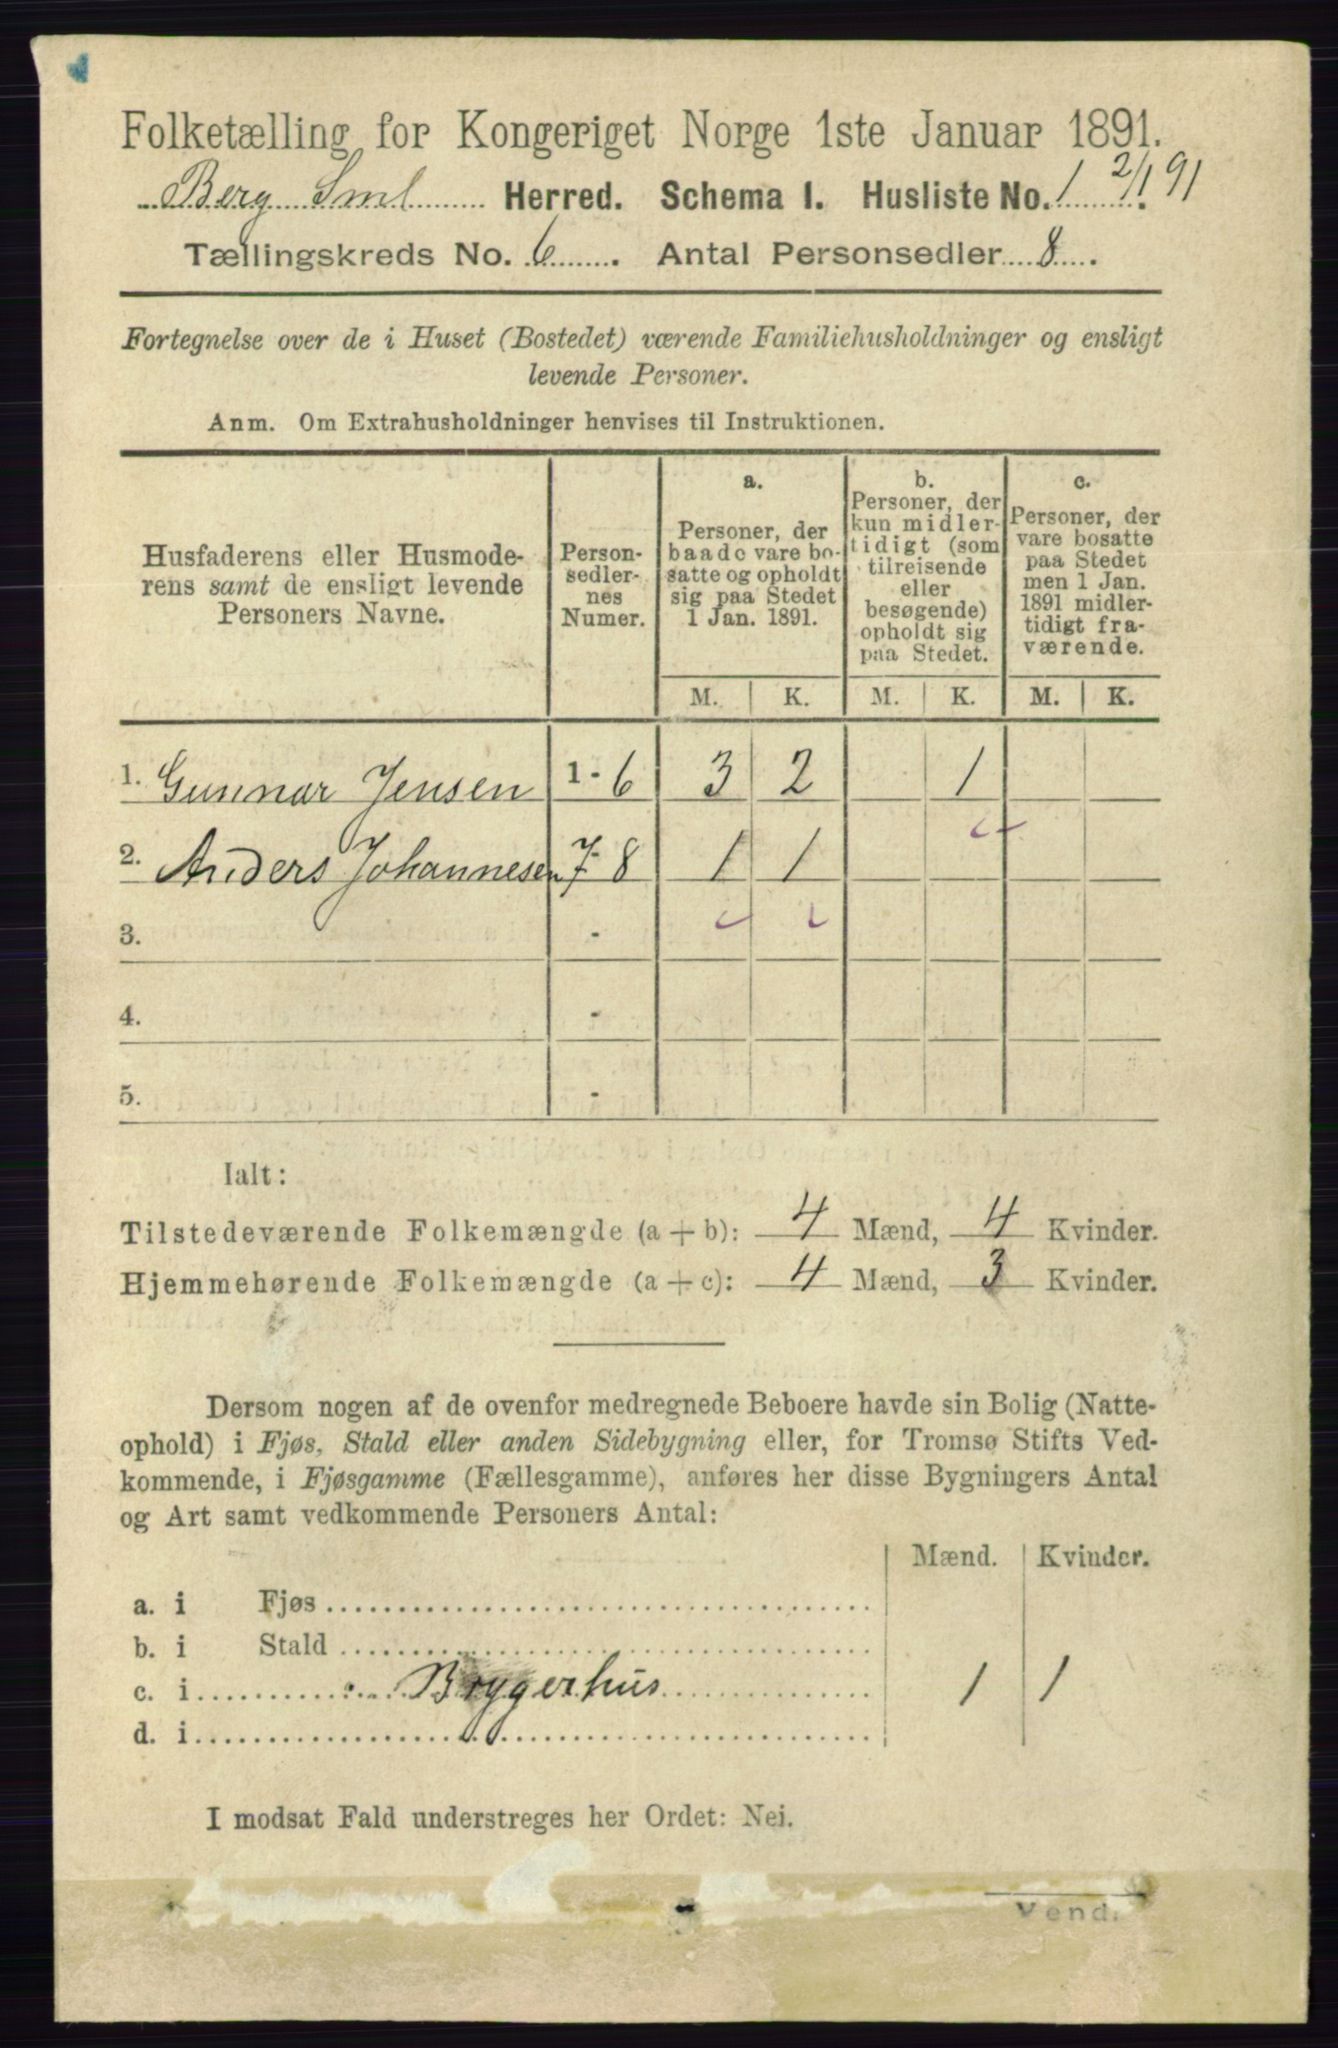 Folketælling for Kongeriget Norge 1ste Januar 1891.
Berg Sml Herred. Schema I. Husliste No. 1 2/1 91
Tællingskreds No. 6 . Antal Personsedler 8 .
Fortegnelse over de i Huset (Bostedet) værende Familiehusholdninger og ensligt
levende Personer.
Anm. Om Extrahusholdninger henvises til Instruktionen.
Husfaderens eller Husmode-
rens samt de ensligt levende
Personers Navne.
Person-
sedler-
nes
Numer.
a.
Personer, der
baade vare bo-
satte og opholdt
sig paa Stedet
1 Jan. 1891.
b.
Personer, der
kun midler-
tidigt (som
tilreisende
eller
besøgende)
opholdt sig
paa Stedet.
c.
Personer, der
vare bosatte
paa Stedet
men 1 Jan.
1891 midler-
tidigt fra-
værende.
M. K. M. K. M. K.
1. Gunnar Jensen 1 - 6 3 2 1
2. Anders Johannesen 7 - 8 1 1
3. -
4. -
5. -
Ialt:
Tilstedeværende Folkemængde (a + b): 4 Mænd, 4 Kvinder.
Hjemmehørende Folkemængde (a + c): 4 Mænd, 3 Kvinder.
Dersom nogen af de ovenfor medregnede Beboere havde sin Bolig (Natte-
ophold) i Fjøs, Stald eller anden Sidebygning eller, for Tromsø Stifts Ved-
kommende, i Fjøsgamme (Fællesgamme), anføres her disse Bygningers Antal
og Art samt vedkommende Personers Antal:
Mænd. Kvinder.
a. i Fjøs
b. i Stald
c. i Bryggerhus 1 1
d. i
I modsat Fald understreges her Ordet: Nei.
Vend.